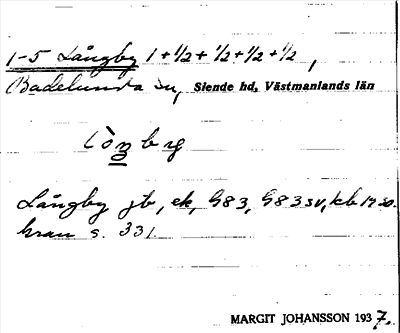 1-5 Långby 1+1/2+1/2+1/2+1/2,
Badelunda sn, Siende hd, Västmanlands län
Långby jb, ek, G83, G83sv, kb
s. 331.
MARGIT JOHANSSON 1937.